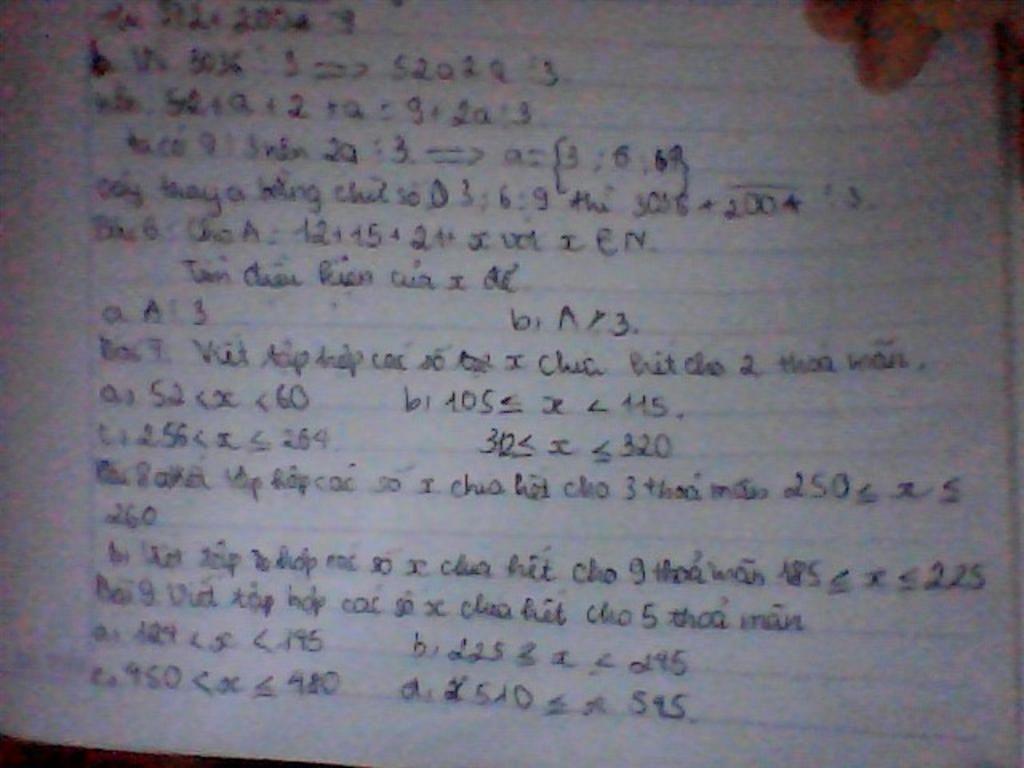 b. Vì 3036 ⋮ 3 => 52a2a ⋮ 3
nên 5+2+a+2+a = 9+2a ⋮ 3
ta có 9 ⋮ 3 nên 2a ⋮ 3 => a = {3 ; 6 ; 9}
vậy thay a bằng chữ số 3 ; 6 ; 9 thì 3036 + ⋮ 3.
Bài 6. Cho A = 12+15+21+ x với x ∈ N.
Tìm điều kiện của x để
a. A ⋮ 3 b, A 3.
Bài 7. Viết tập hợp các số x chia hết cho 2 thoả mãn.
a, 52 < x < 60 b, 105 ≤ x < 115.
c, 256 < x ≤ 264 312 ≤ x ≤ 320
Bài 8 a Viết tập hợp các số x chia hết cho 3 thoả mãn 250 ≤ x ≤
260
b, Viết tập hợp các số x chia hết cho 9 thoả mãn 185 ≤ x ≤ 225
Bài 9. Viết tập hợp các số x chia hết cho 5 thoả mãn
a, 124 < x < 145 b, 225 ≤ x < 245
c, 450 < x ≤ 480 d, 510 ≤ x 545.